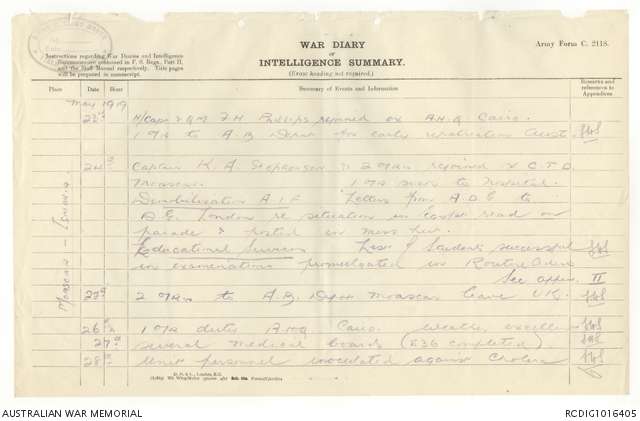 WAR DIARY
OR
INTELLIGENCE SUMMARY.
(Erase heading not required.)
Army Form C. 2118.
Instructions regarding War Diaries and Intelligence
Summaries are contained in F. S. Regs., Part II,
and the Staff Manual respectively. Title pages
will be prepared in manuscript.
Place
Date
Hour
Summary of Events and Information
Remarks and
references to
Appendices
May 1919
Moascar -
23rd
H/Capt & QM F H Phillips rejoined ex A.H.Q Cairo.
1 OR to A.B. Depot for early repatriation Aust.
24th
Captain K. A. Stephenson & 2 ORs rejoined ex C.T.D
Moascar. 1 OR sick to Hospital.
Demobilization A.I.F. Letters from A.D.E to
D.E. London re situation in read on
parade & posted in mess hut.
Educational Services List of Students successful
in examinations promulgated in Routine Orders
See appen. II
25th
2 ORs to A.B. Depot Moascar leave U.K.
26th
1 OR duty A.H.Q Cairo. weather excellen
27th
several medical boards (536 completed)
28th
Unit personnel inoculated against Cholera
AUSTRALIAN WAR MEMORIAL
RCDIG1016405